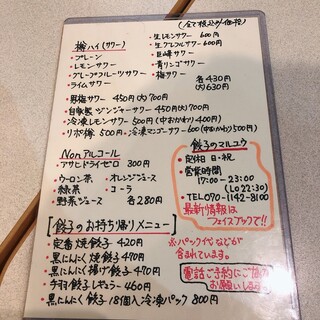 (全て税込み価格)
酎ハイ(サワー)
・プレーン
・レモンサワー
・グレープフルーツサワー
・ライムサワー
・生レモンサワー 600円
・生グレフルサワー 600円
・巨峰サワー
・青リンゴサワー
・梅サワー
各430円
(大)630円
・男梅サワー 450円(大)700円
・自家製ジンジャーサワー 450円(大)700円
・冷凍レモンサワー 500円(中おかわり400円)
・リボ酎 500円・冷凍マンゴーサワー600(中おかわり500円)
Nonアルコール
・アサヒドライゼロ 300円
・ウーロン茶 ・オレンジジュース
・緑茶 ・コーラ
・野菜ジュース 各280円
餃子のマルコウ
・定休日 日・祝
・営業時間
17:00-23:00
(Lo22:30)
・TEL070-1142-8100
最新情報は
フェイスブックで!!
[餃子のお持ち帰りメニュー]
・定番焼餃子 420円
・黒にんにく焼餃子 470円
・黒にんにく揚げ餃子 470円
・手羽餃子レギュラー 460円
・黒にんにく餃子18個入冷凍パック 800円
※パック代などが
含まれています。
電話ご予約にご協力
お願いします